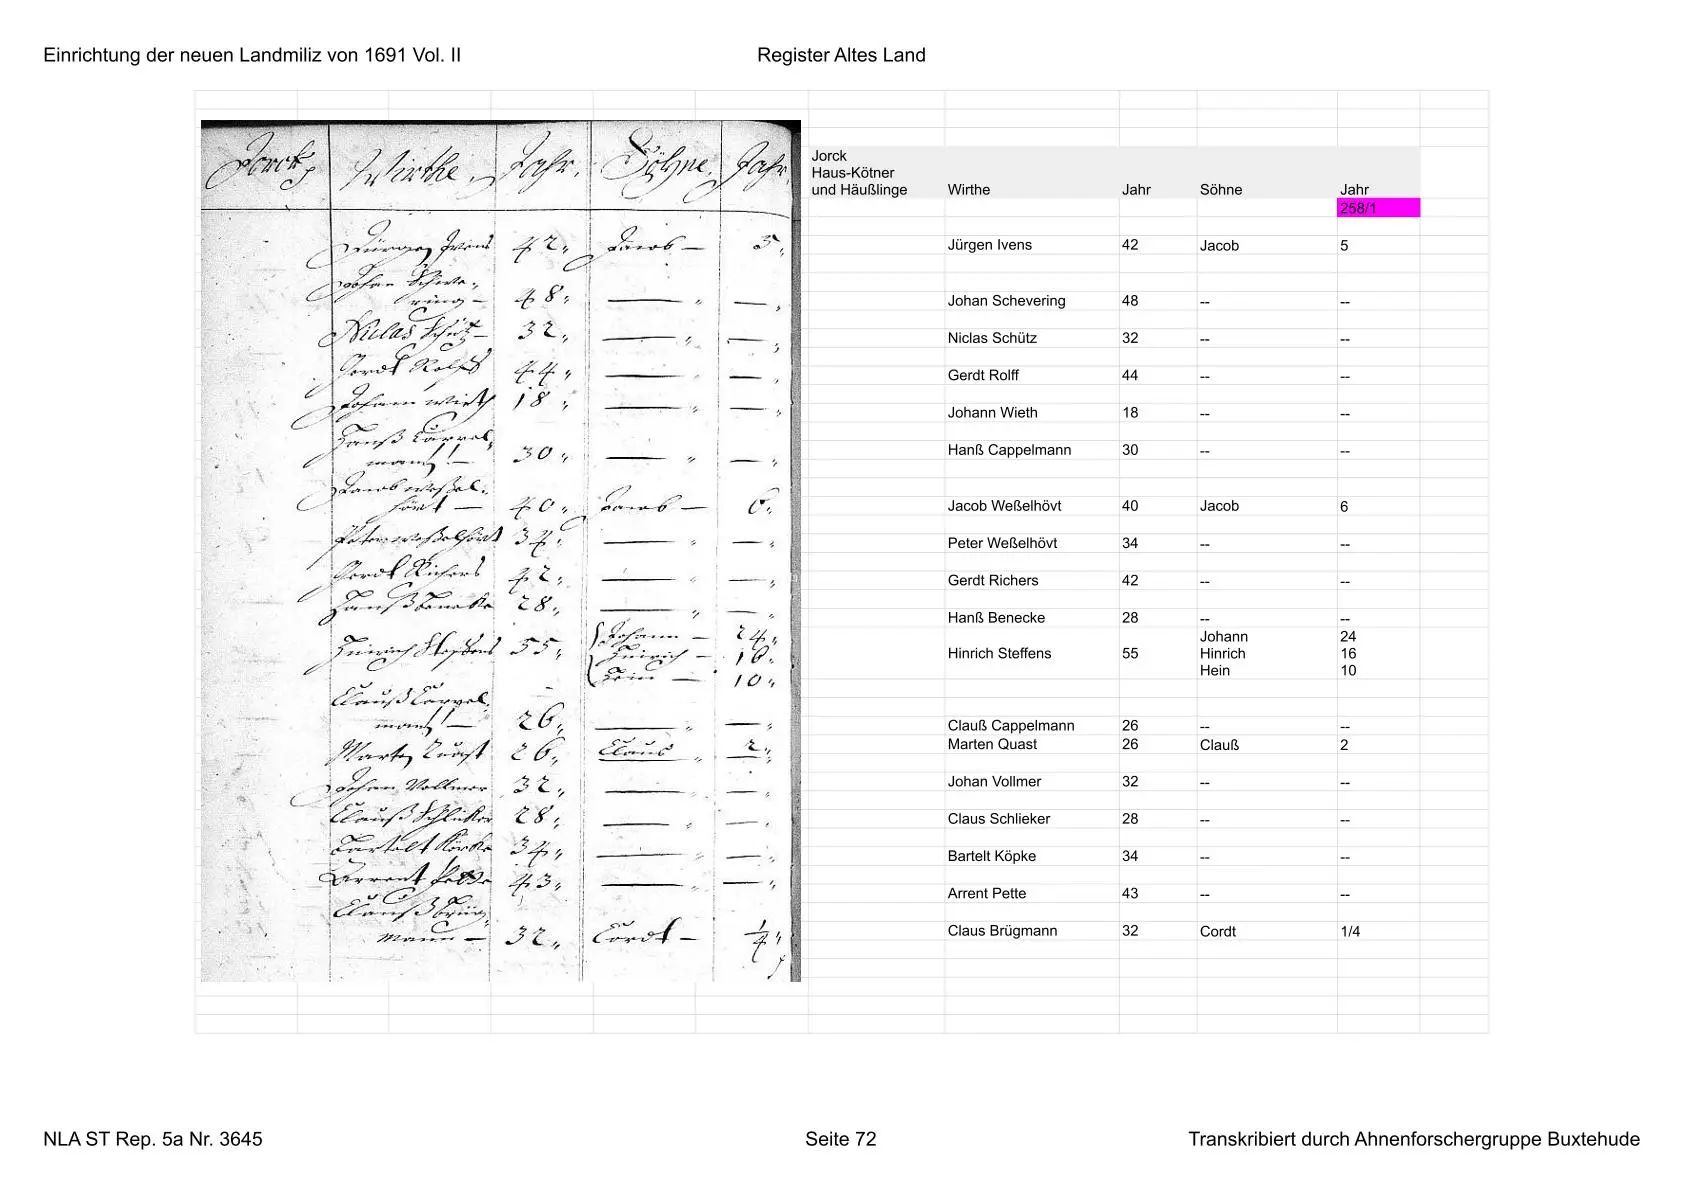 Einrichtung der neuen Landmiliz von 1691 Vol. II
Register Altes Land
Jorck, Wirthe, Jahr. Söhne, Jahr.
Jürgen Ivens 42, Jacob — 5,
Johan Scheve-
ring — 48, — —
Niclas Schütz — 32, — —
Gerdt Rolffs 44, — —
Johann Wieth 18, — —
Hanß Cappel-
mann — 30, — —
Jacob Weßel-
hövt — 40, Jacob — 6,
Peter Weßelhövt 34, — —
Gerdt Richers 42, — —
Hanß Benecke 28, — —
Hinrich Steffens 55, Johann — 24,
Hinrich — 16,
Hein — 10,
Clauß Cappel-
mann — 26, — —
Marten Quast 26, Claus 2,
Johan Vollmer 32, — —
Clauß Schlieker 28, — —
Bartelt Köpke 34, — —
Arrent Pette 43, — —
Clauß Brüg-
mann — 32, Cordt — 1/4,
Jorck
Haus-Kötner
und Häußlinge Wirthe Jahr Söhne Jahr
258/1
Jürgen Ivens 42 Jacob 5
Johan Schevering 48 -- --
Niclas Schütz 32 -- --
Gerdt Rolff 44 -- --
Johann Wieth 18 -- --
Hanß Cappelmann 30 -- --
Jacob Weßelhövt 40 Jacob 6
Peter Weßelhövt 34 -- --
Gerdt Richers 42 -- --
Hanß Benecke 28 -- --
Johann 24
Hinrich Steffens 55 Hinrich 16
Hein 10
Clauß Cappelmann 26 -- --
Marten Quast 26 Clauß 2
Johan Vollmer 32 -- --
Claus Schlieker 28 -- --
Bartelt Köpke 34 -- --
Arrent Pette 43 -- --
Claus Brügmann 32 Cordt 1/4
NLA ST Rep. 5a Nr. 3645
Seite 72
Transkribiert durch Ahnenforschergruppe Buxtehude